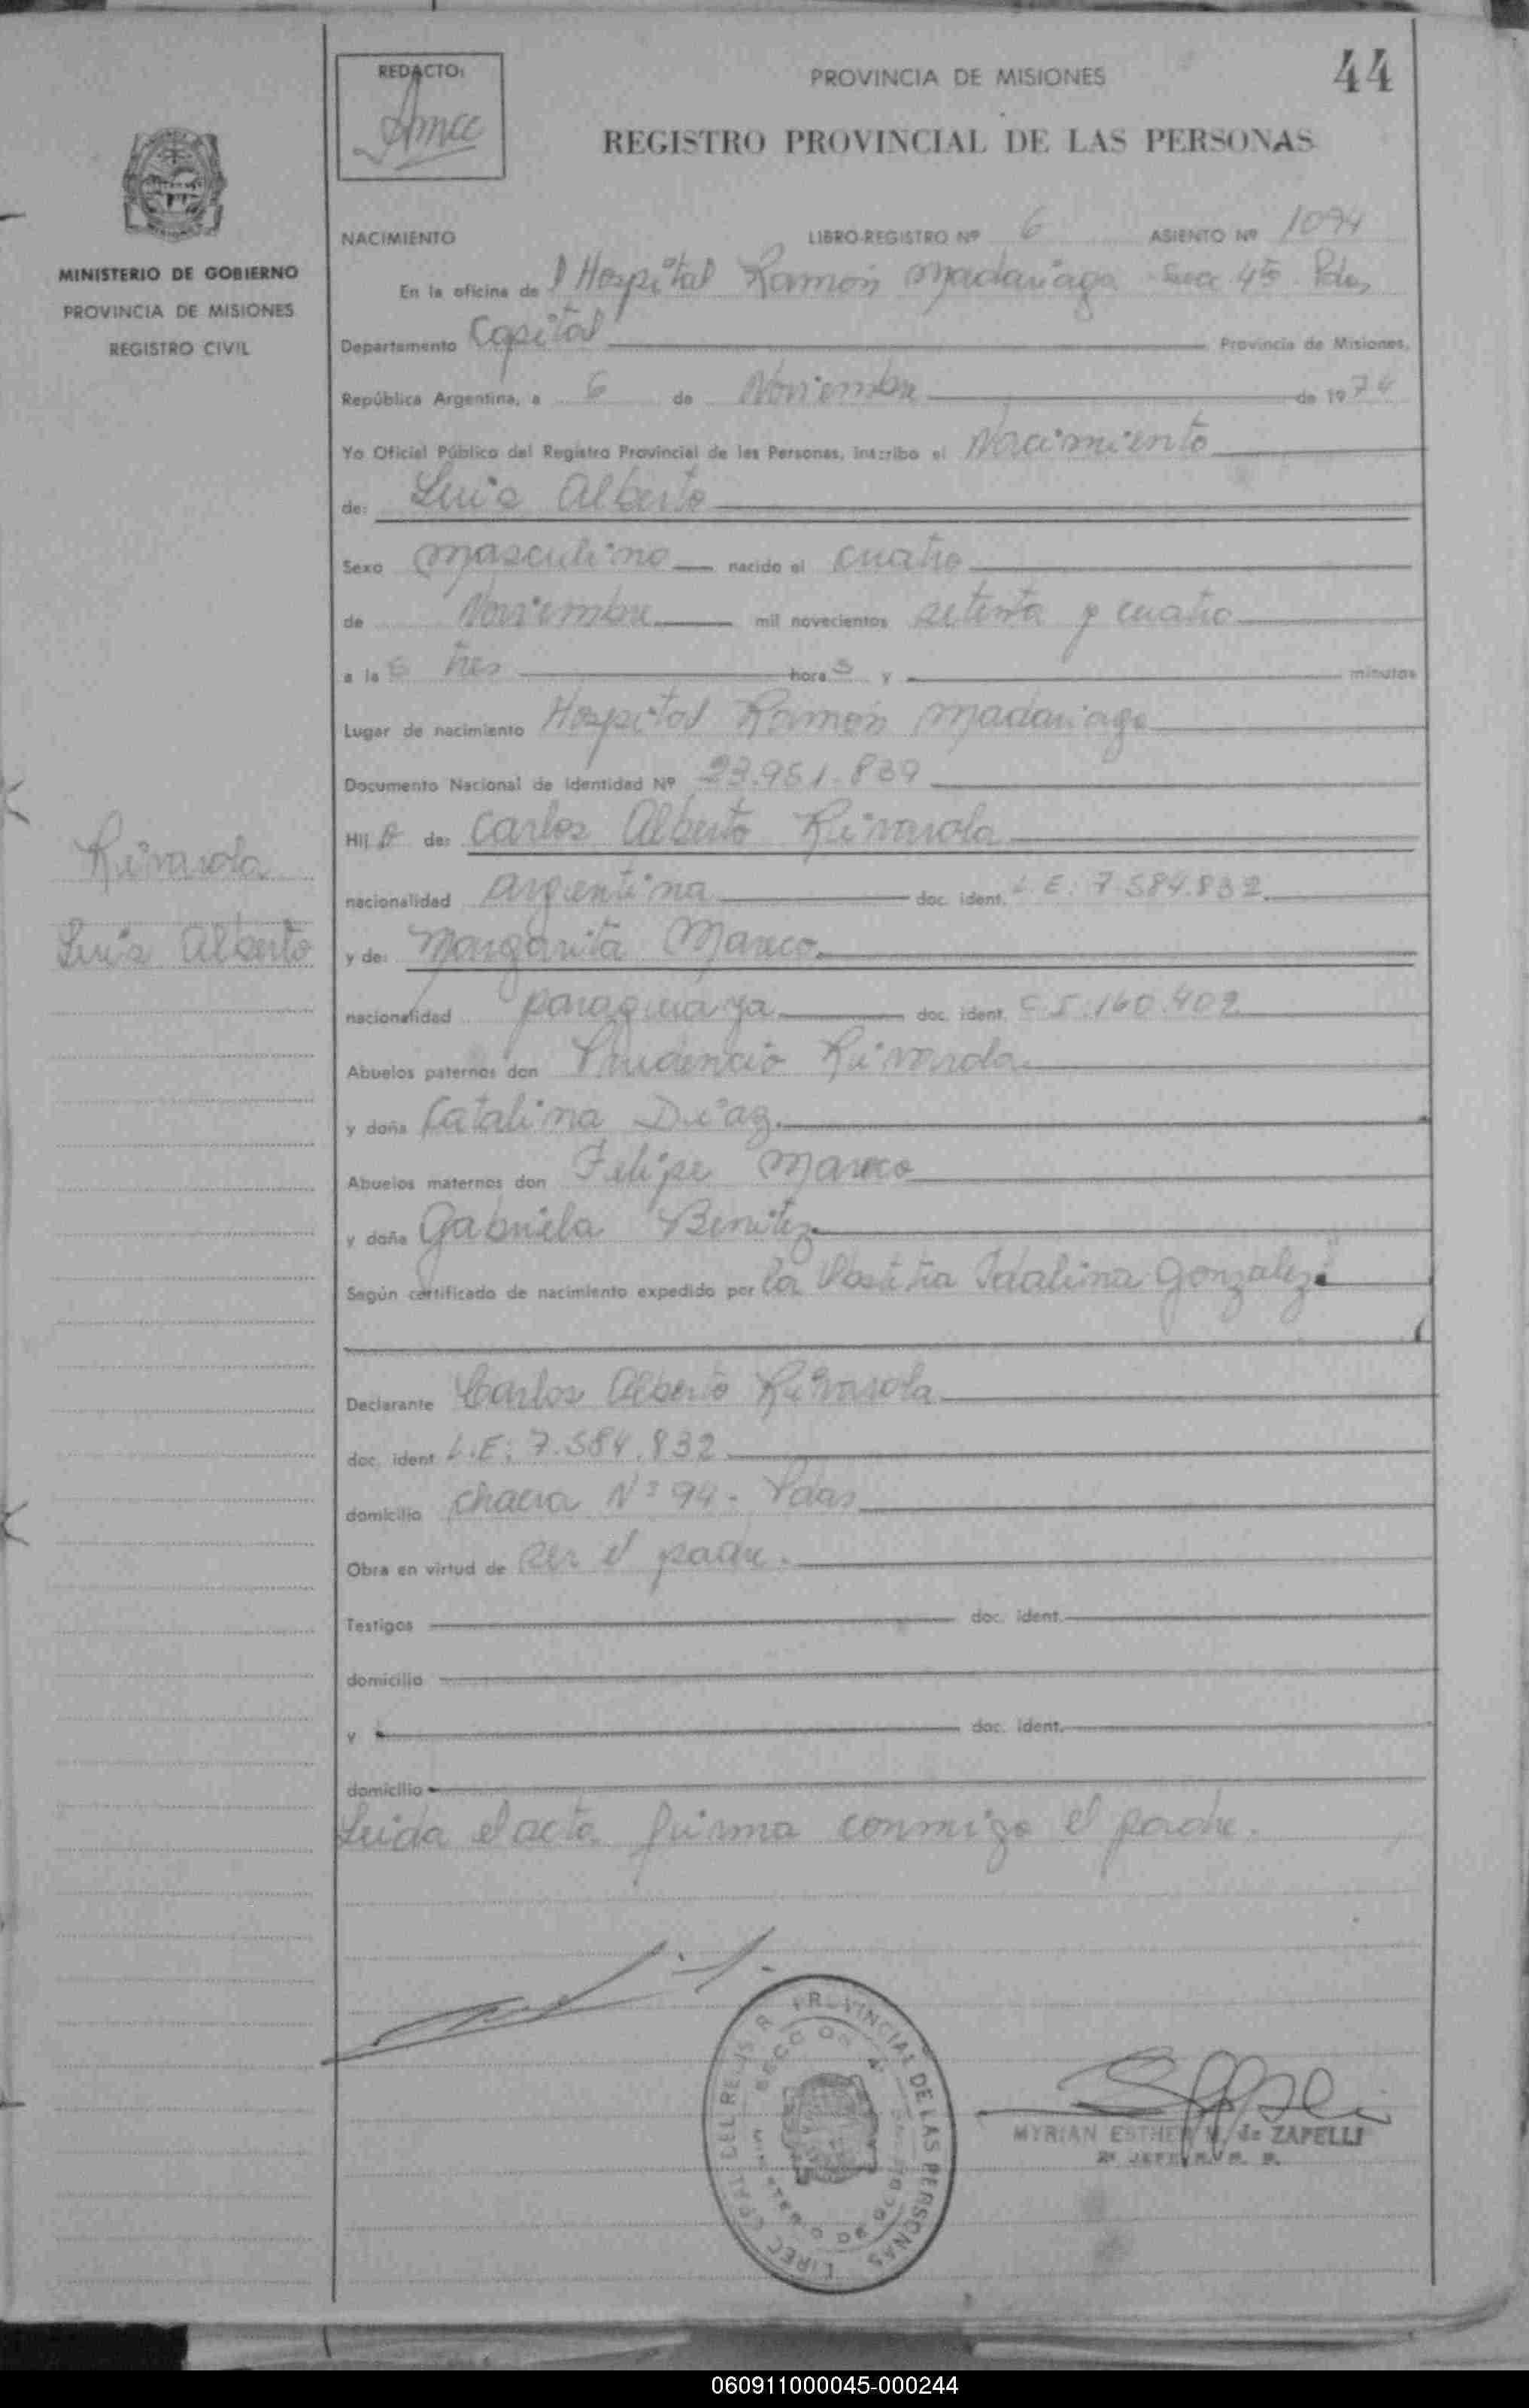 44
REDACTO:
PROVINCIA DE MISIONES
REGISTRO PROVINCIAL DE LAS PERSONAS
MINISTERIO DE GOBIERNO
PROVINCIA DE MISIONES
REGISTRO CIVIL
NACIMIENTO LIBRO-REGISTRO Nº 6 ASIENTO Nº 1094
En la oficina del Hospital Ramón Madariaga Secc 4ta Pdas
Departamento Capital Provincia de Misiones,
República Argentina, a 6 de Noviembre de 1974
Yo Oficial Público del Registro Provincial de las Personas, inscribo el Nacimiento
de: Luis Alberto
Sexo masculino nacido el cuatro
de Noviembre mil novecientos setenta y cuatro
a las tres horas y minutos
Lugar de nacimiento Hospital Ramón Madariaga
Documento Nacional de Identidad Nº 23.951.839
Hijo de: Carlos Alberto Rivarola
Rivarola
Luis Alberto
nacionalidad argentina doc. ident. L.E: 7.584.832
y de: Margarita Mareco
nacionalidad paraguaya doc. ident. 160.402
Abuelos paternos don Prudencio Rivarola
y doña Catalina Diaz
Abuelos maternos don Felipe Mareco
y doña Gabriela Benitez
Según certificado de nacimiento expedido por la Idalina Gonzalez
Declarante Carlos Alberto Rivarola
doc. ident L.E: 7.584.832
domicilio chacra Nº 94 - Pdas
Obra en virtud de ser el padre.
Testigos doc. ident.
domicilio
y doc. ident.
domicilio
Leida el acta firma conmigo el padre.
PROVINCIAL DE LAS PERSONAS
MYRIAN ESTHER V. de ZAPELLI
060911000045-000244